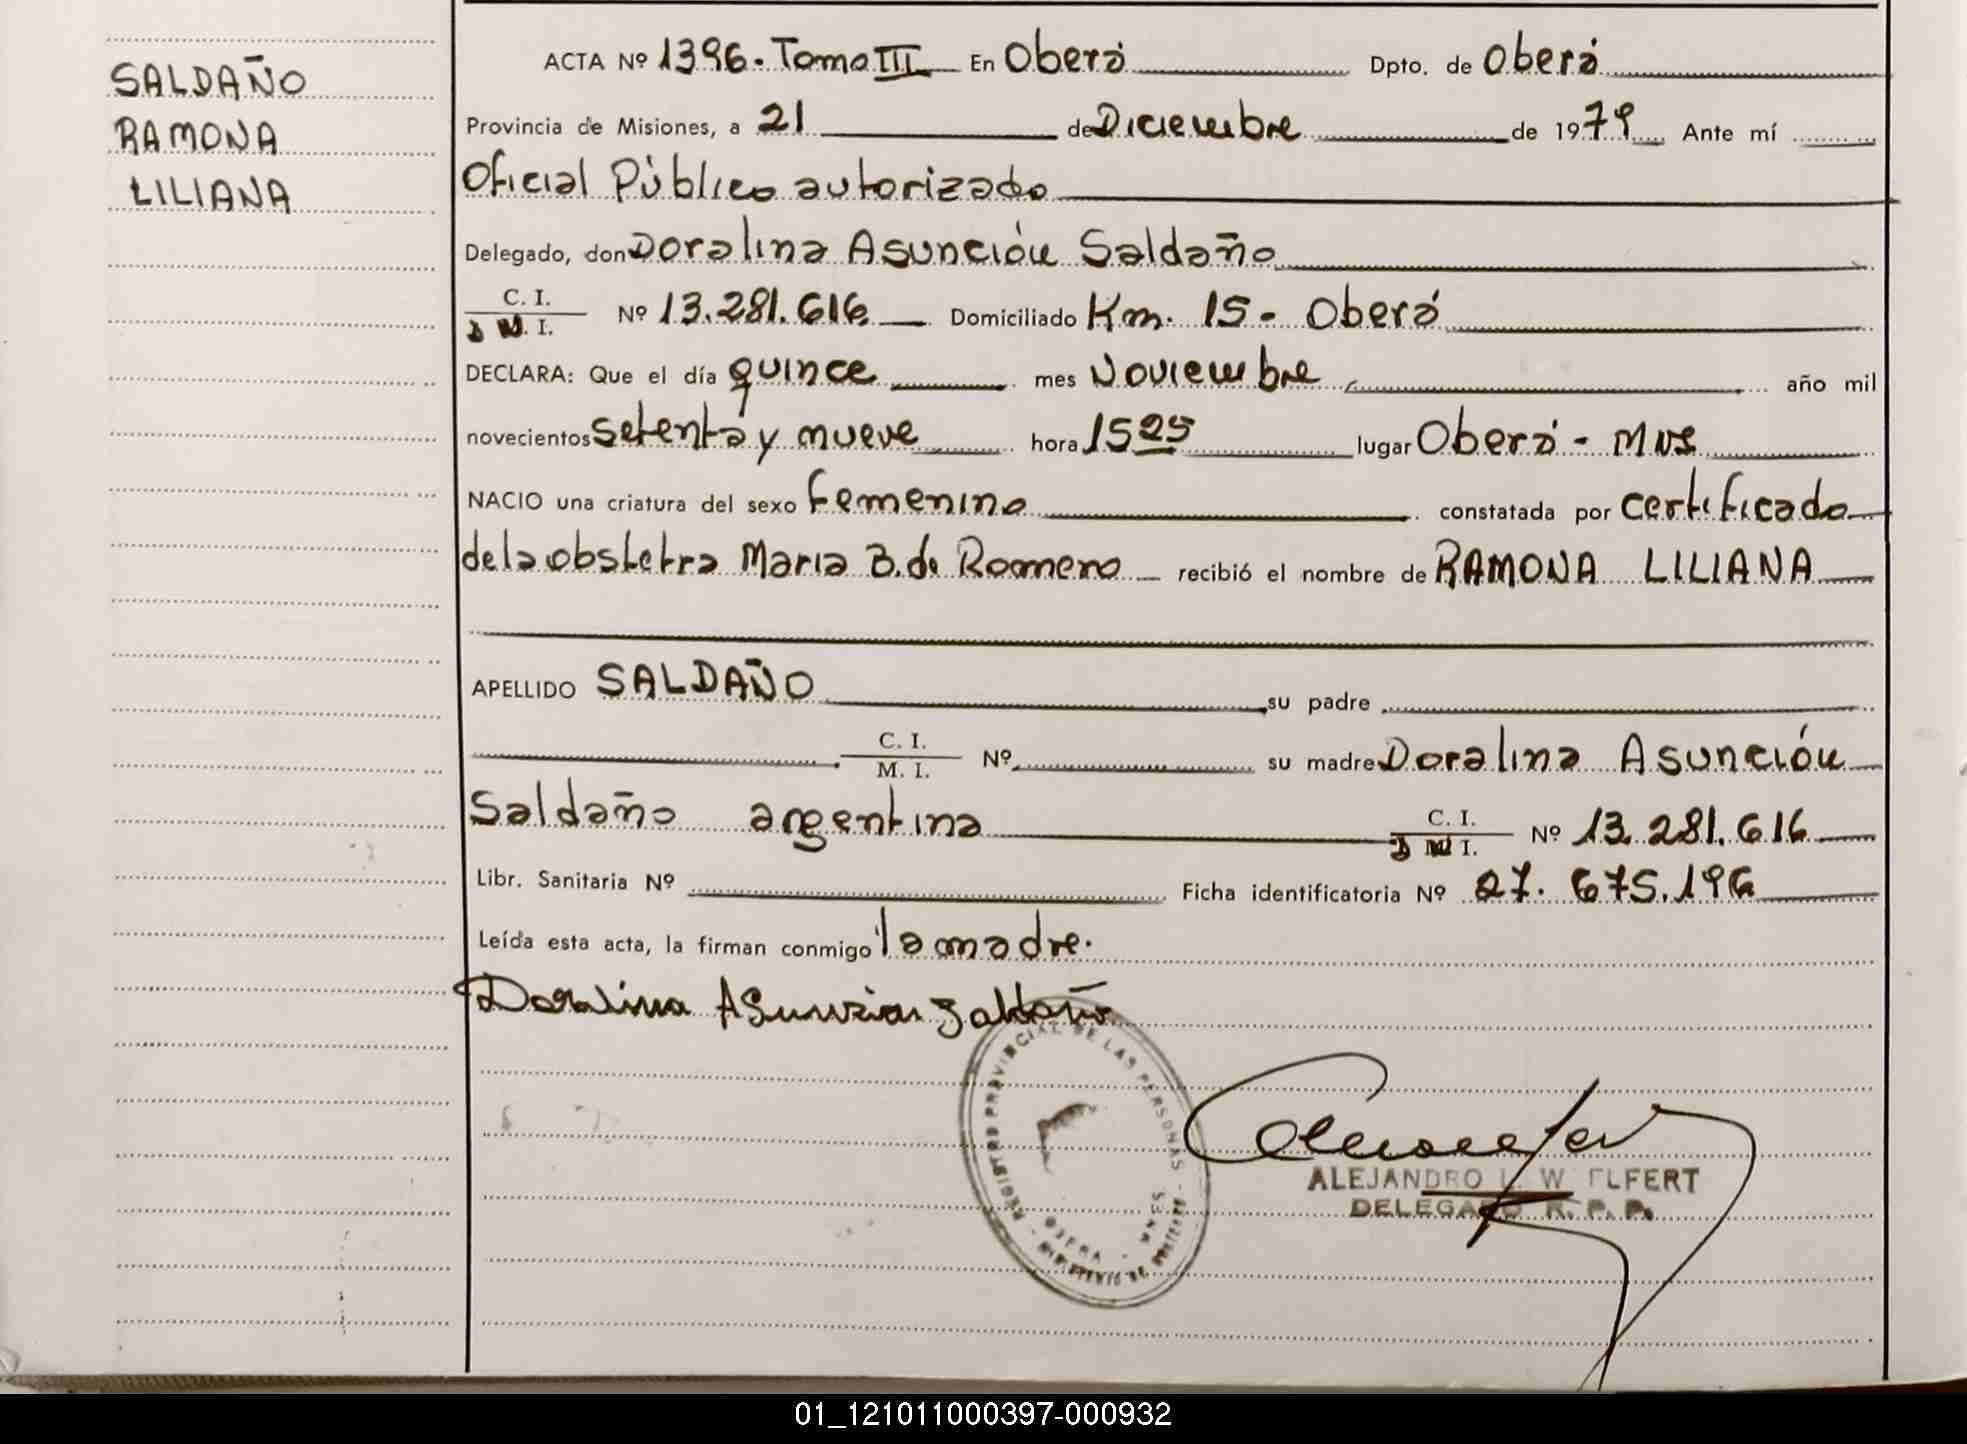 SALDAÑO
RAMONA
LILIANA
ACTA Nº 1396. Tomo III En Oberá Dpto. de Oberá
Provincia de Misiones, a 21 de Diciembre de 1979 Ante mí
Oficial Público autorizado
Delegado, don Doralina Asunción Saldaño
C. I.
D N. I. Nº 13.281.616 Domiciliado Km. 15 - Oberá
DECLARA: Que el día quince mes Noviembre año mil
novecientos setenta y nueve hora 15 25 lugar Oberá - Mns
NACIO una criatura del sexo femenino constatada por certificado
de la obstetra Maria B. de Romero recibió el nombre de RAMONA LILIANA
APELLIDO SALDAÑO su padre
C. I.
M. I. Nº su madre Doralina Asunción
Saldaño argentina C. I.
D N I. Nº 13.281.616
Libr. Sanitaria Nº Ficha identificatoria Nº 27.675.196
Leída esta acta, la firman conmigo la madre.
Doralina Asunzion Zaldaño
REGISTRO PROVINCIAL DE LAS PERSONAS - MNES
OBERA
ALEJANDRO L. W ELFERT
DELEGADO R. P. P.
01_121011000397-000932